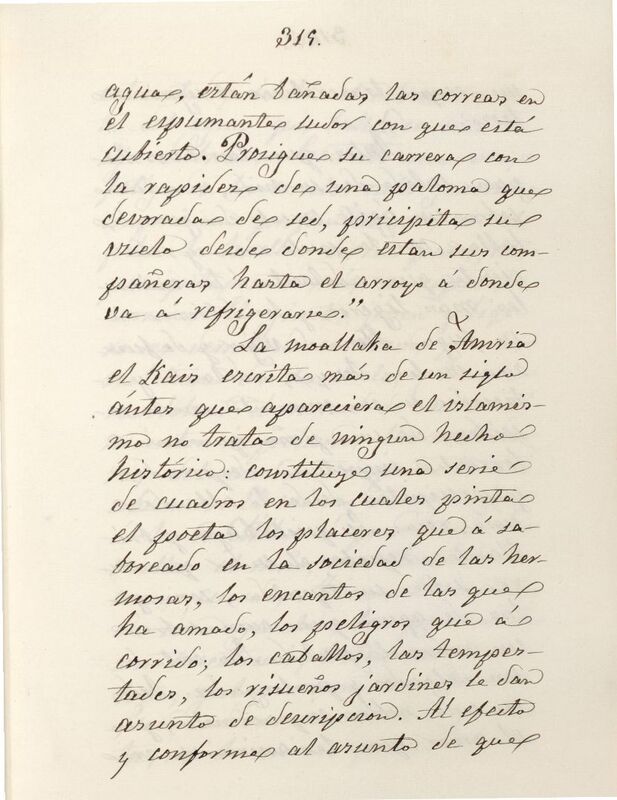 319.
agua, están bañadas las correas en
el espumante sudor con que está
cubierto. Prosigue su carrera con
la rapidez de una paloma que
devorada de sed, pricipita su
vuelo desde donde estan sus com-
pañeras hasta el arroyo á donde
va á refrigerarse."
La moallaka de Amria
el Kais escrita más de un siglo
ántes que apareciera el islamis-
mo no trata de ningun hecho
histórico: constituye una serie
de cuadros en los cuales pinta
el poeta los placeres que á sa-
boreado en la sociedad de las her-
mosas, los encantos de las que
ha amado, los peligros que á
corrido; los caballos, las tempes-
tades, los risueños jardines le dan
asunto de descripcion. Al efecto
y conforme al asunto de que